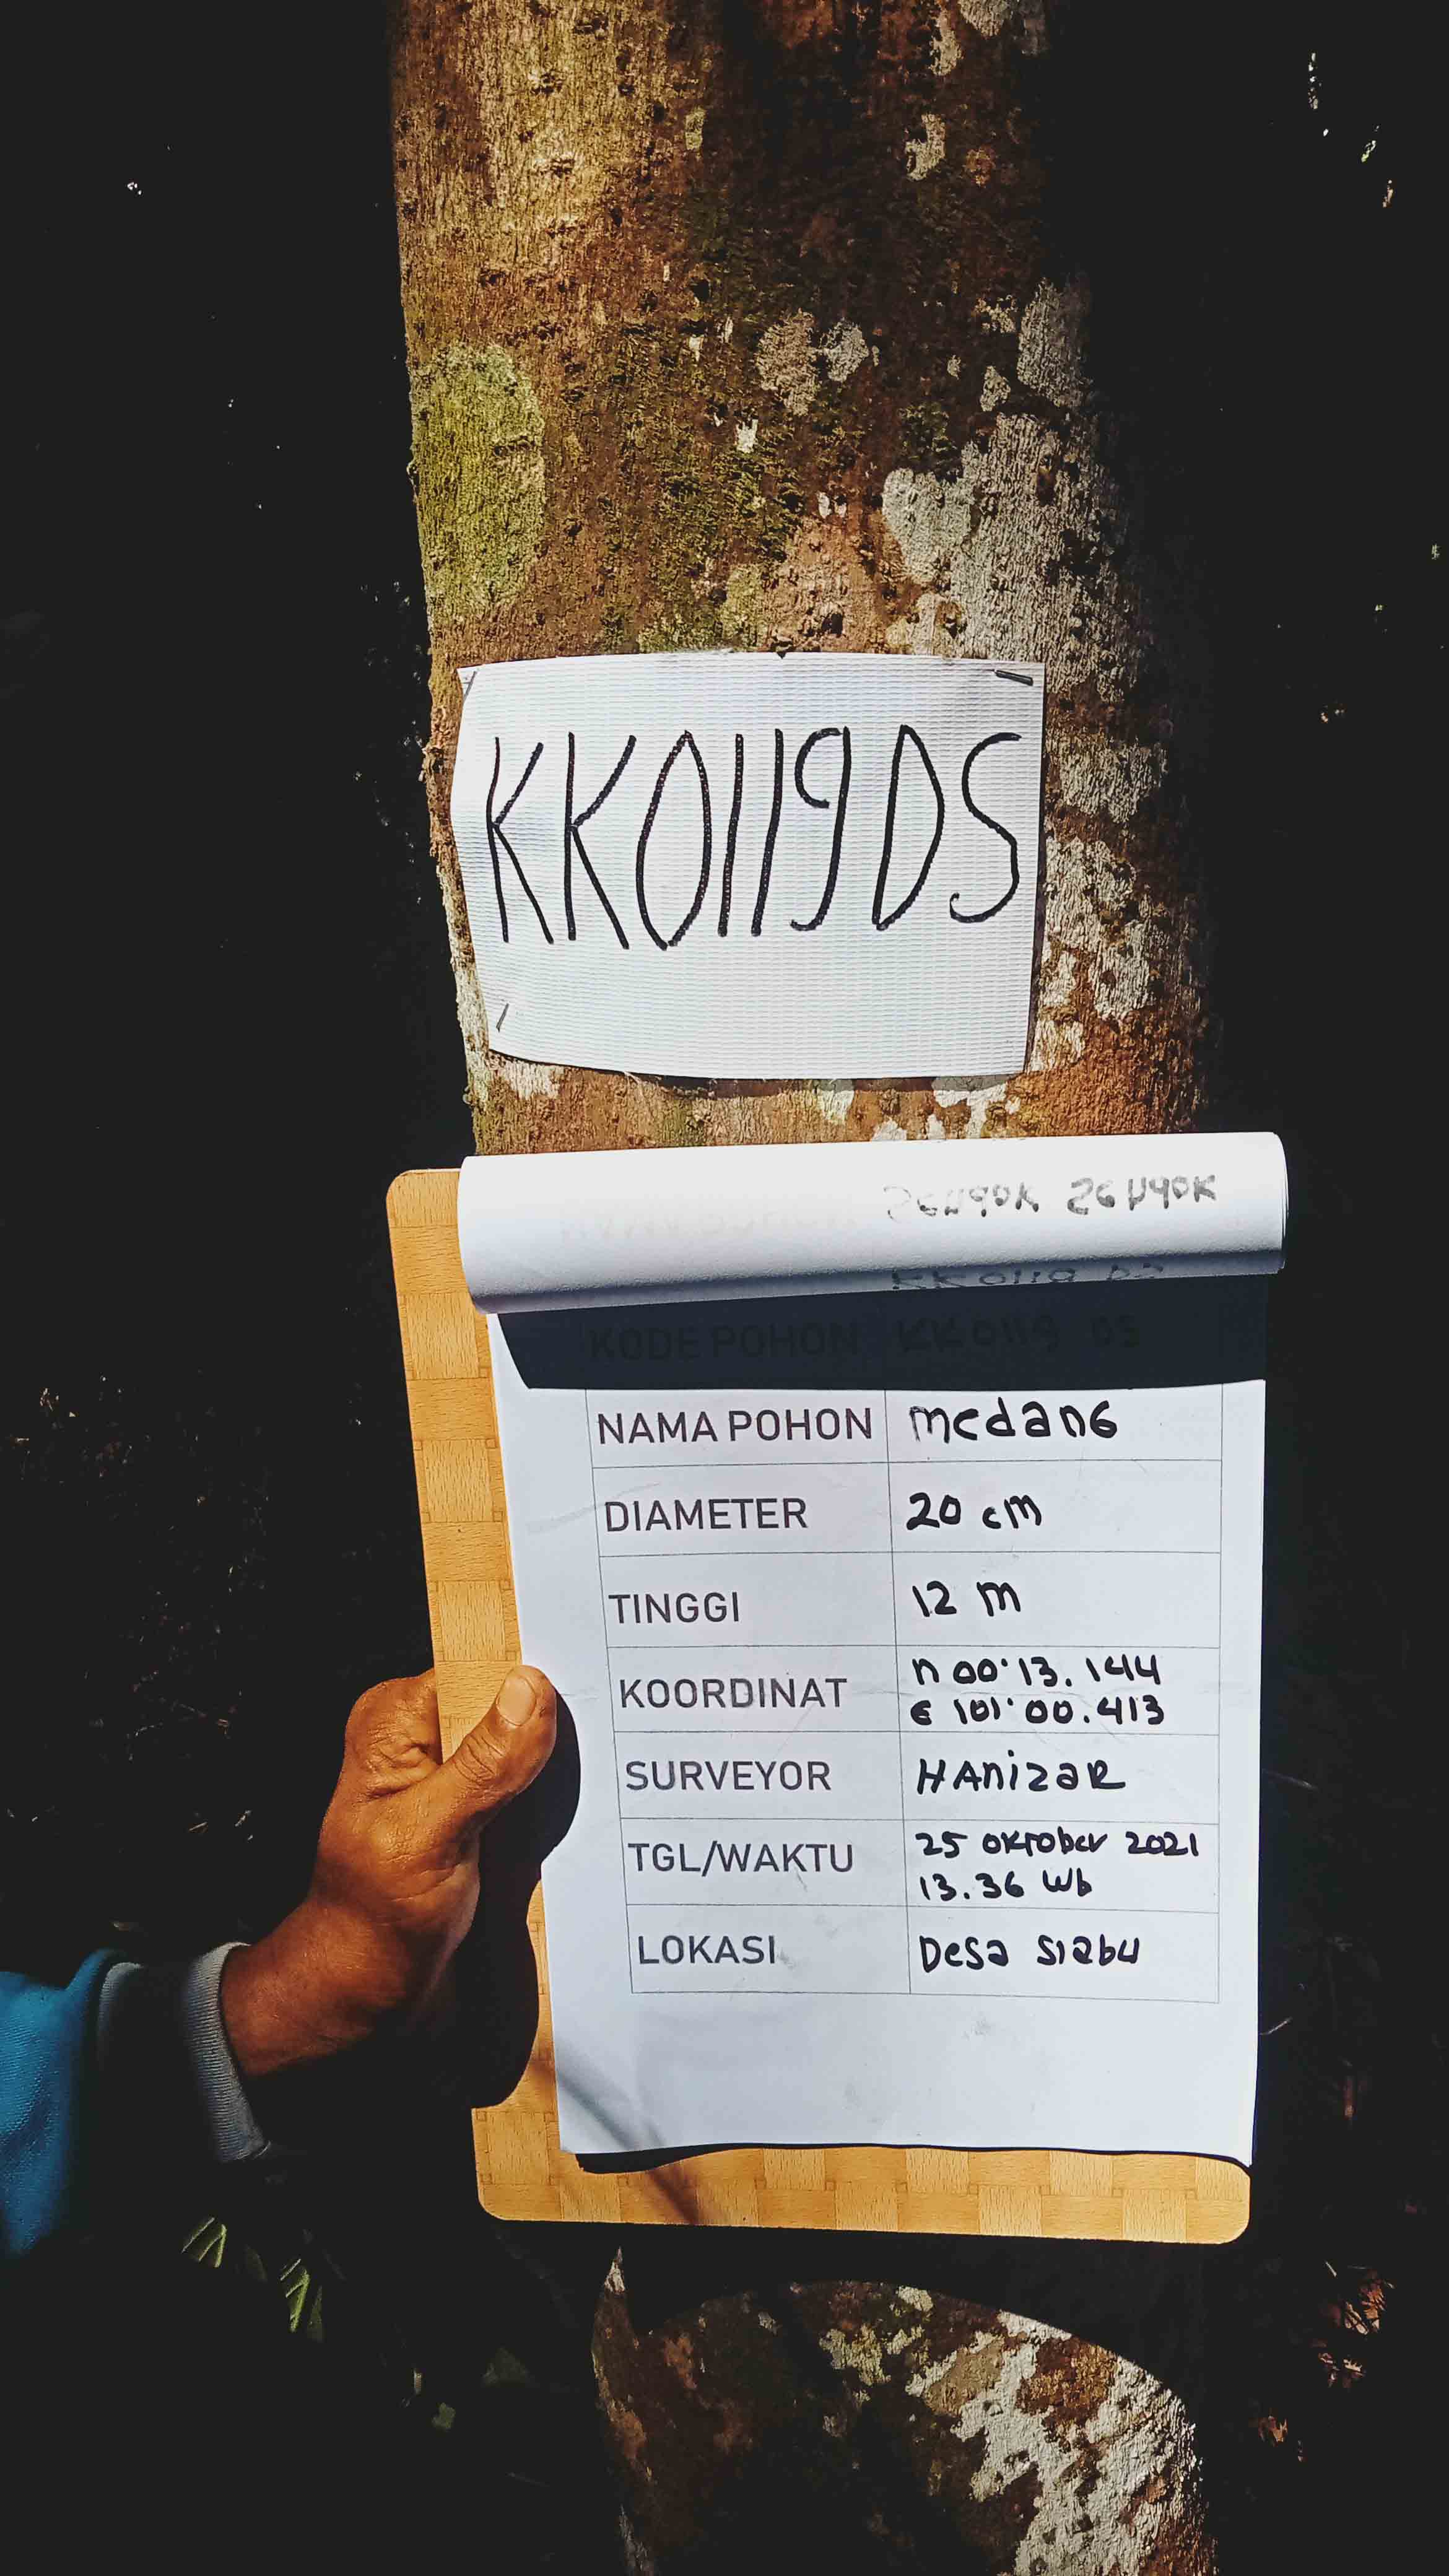 KK0119DS
Sengok Sengok
KODE POHON KK 0119 DS
NAMA POHON medanG
DIAMETER 20 cm
TINGGI 12 m
KOORDINAT n 00°13.144
E 101°00.413
SURVEYOR HAnizaR
TGL/WAKTU 25 oktober 2021
13.36 Wb
LOKASI Desa siabu